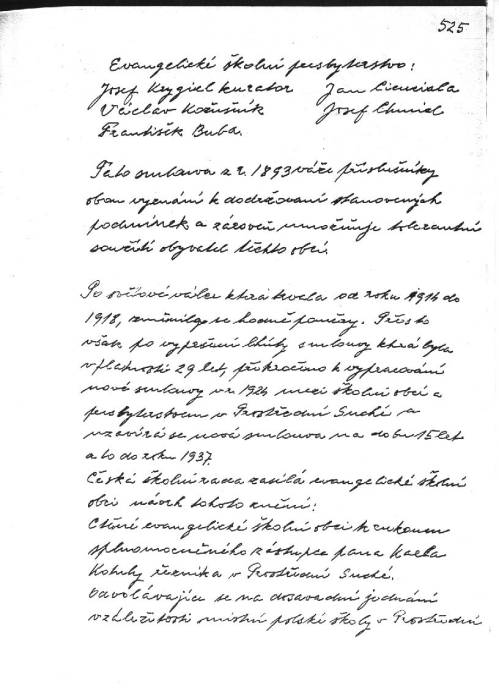 525
Evangelické školní presbyterstvo:
Josef Krygiel kurator Jan Cienciala
Václav Kožušník Josef Chmiel
František Buba.
Tato smlouva z r. 1893 váže příslušníky
obou vyznání k dodržování stanovených
podmínek a zároveň umožňuje tolerantní
soužití obyvatel těchto obcí.
Po světové válce která trvala od roku 1914 do
1918, změnily se hodně poměry. Přes to
však po vypršení lhůty smlouvy která byla
v platnosti 29 let, přikročeno k vypracování
nové smlouvy v r. 1924 mezi školní obcí a
presbyterstvem v Prostřední Suché a
uzavírá se nová smlouva na dobu 15 let
a to do roku 1937.
Česká školní rada zasílá evangelické školní
obci návrh tohoto znění:
Ctěné evangelické školní obci k rukoum
splnomocněného zástupce pana Karla
Kotuly řezníka v Prostřední Suché.
Odvolávajíce se na dosavadní jednání
v záležitosti místní polské školy v Prostřední